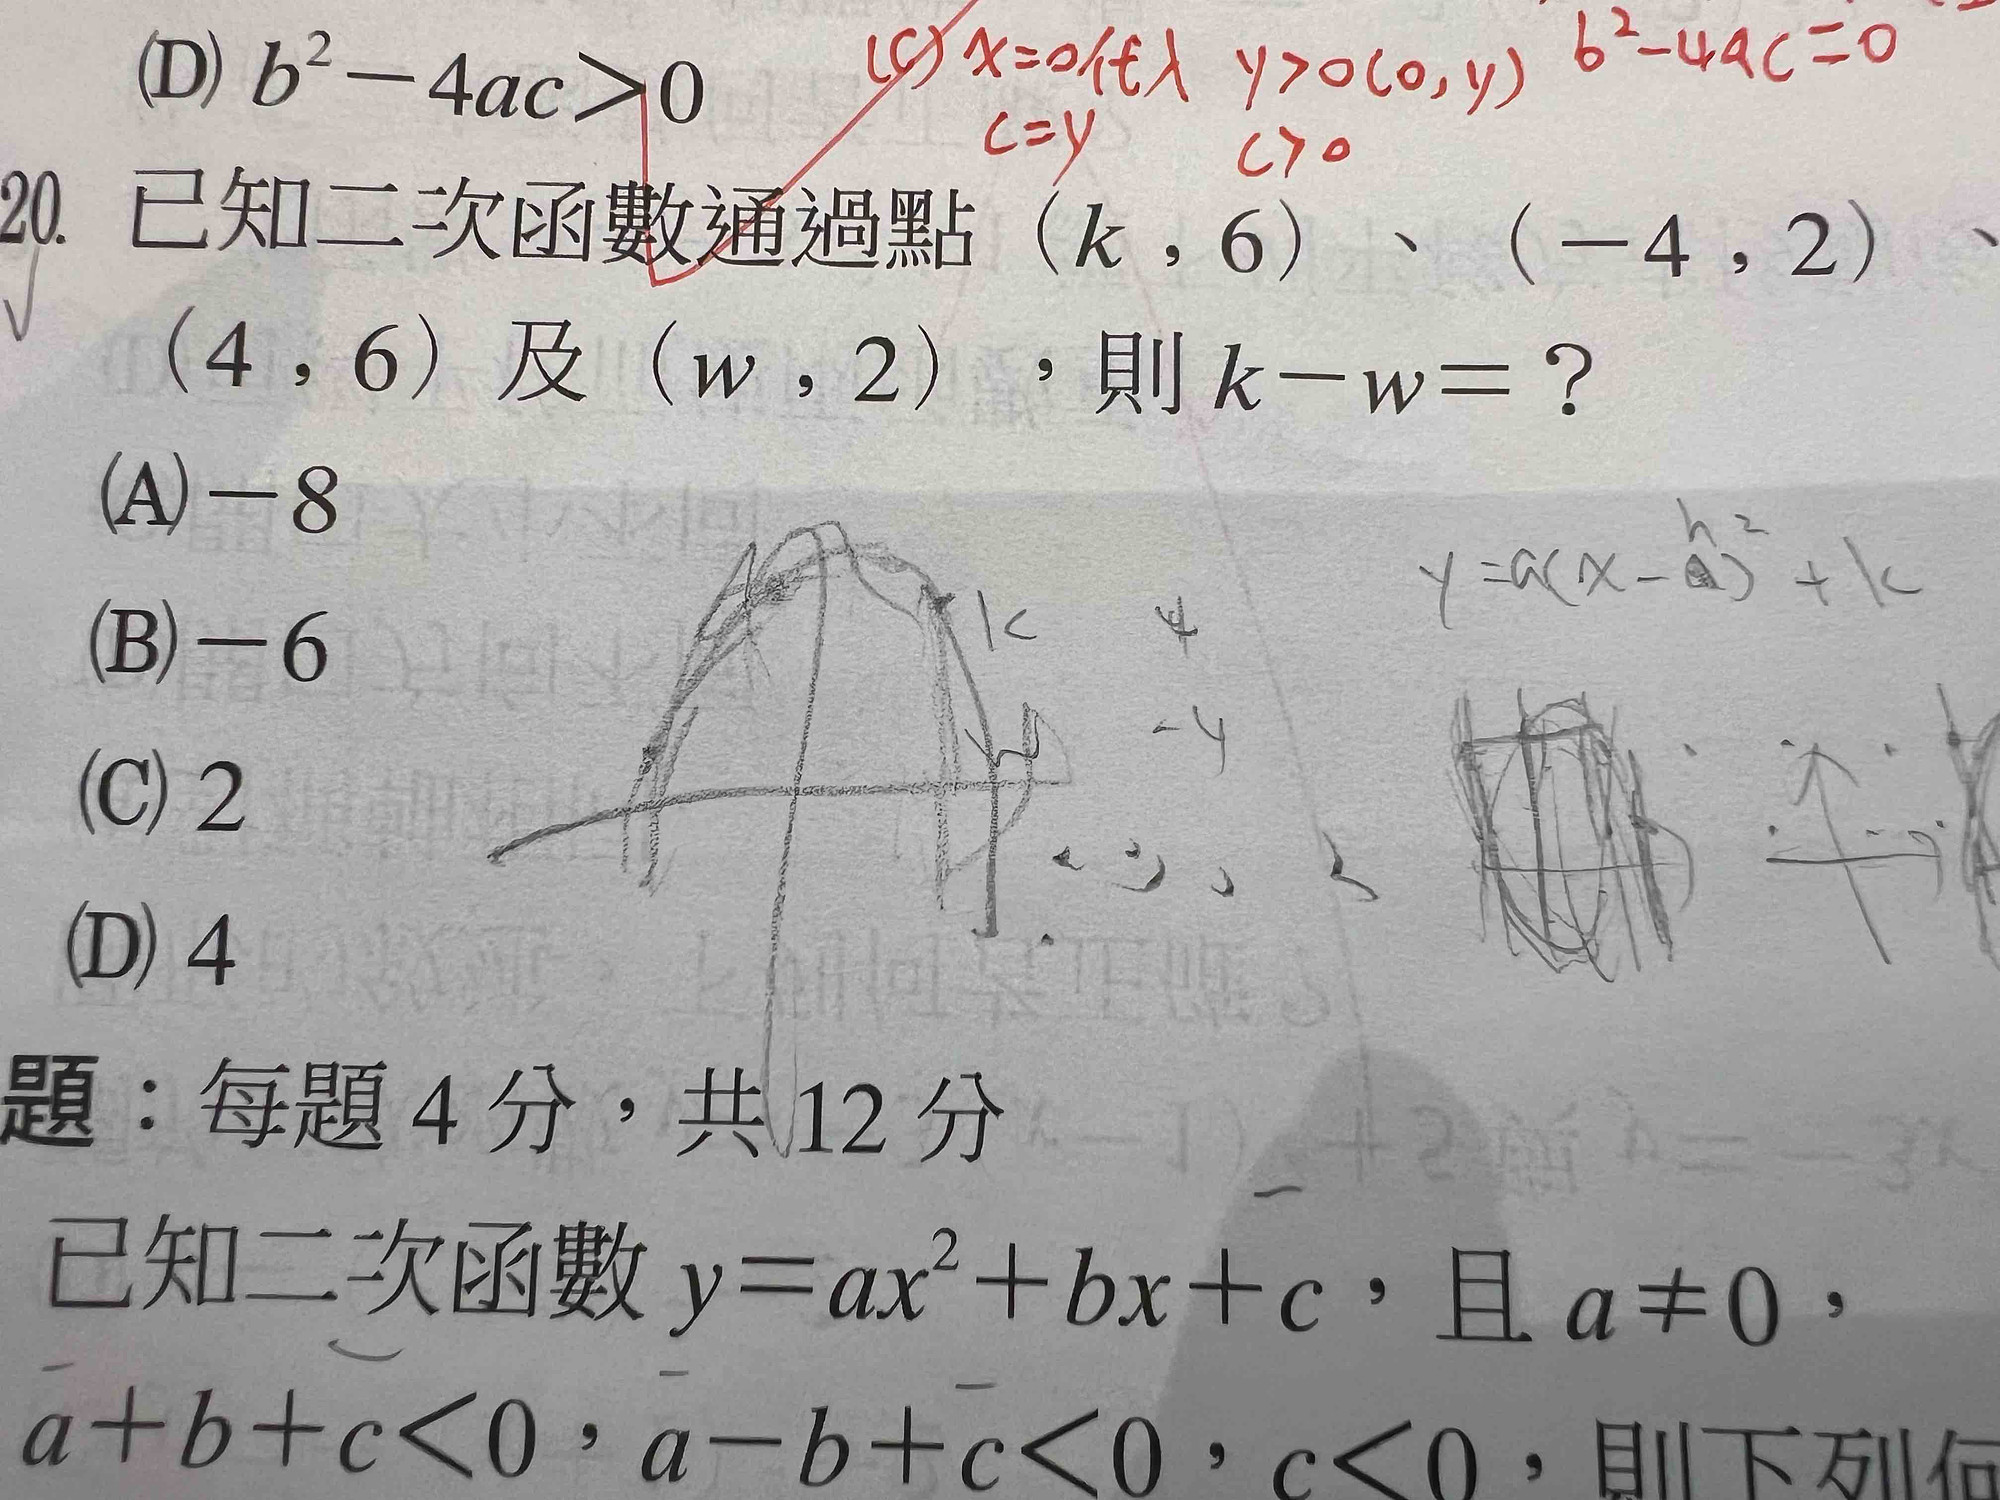 (D) b²－4ac＞0
(C) x=0代入 y>0(0,y) b²-4ac=0
c=y c>0
20. 已知二次函數通過點（k，6）、（－4，2）、
（4，6）及（w，2），則 k－w＝？
(A)－8
(B)－6
(C) 2
(D) 4
y=a(x-h)²+k
k 4
-4
題：每題 4 分，共 12 分
已知二次函數 y＝ax²＋bx＋c，且 a≠0，
a＋b＋c＜0，a－b＋c＜0，c＜0，則下列何